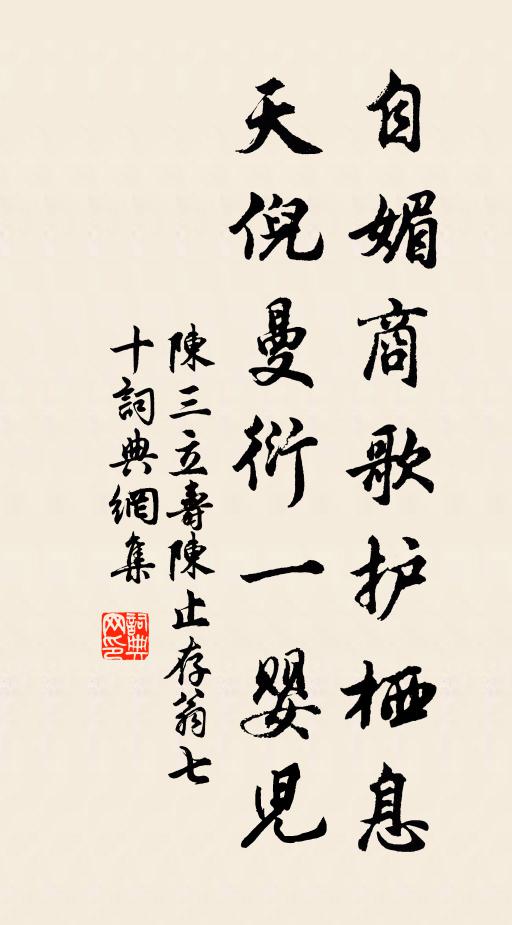 自媚商歌护栖息
天倪曼衍一婴児
陳三立壽陳止存翁七
十詞典網集
詞典网印